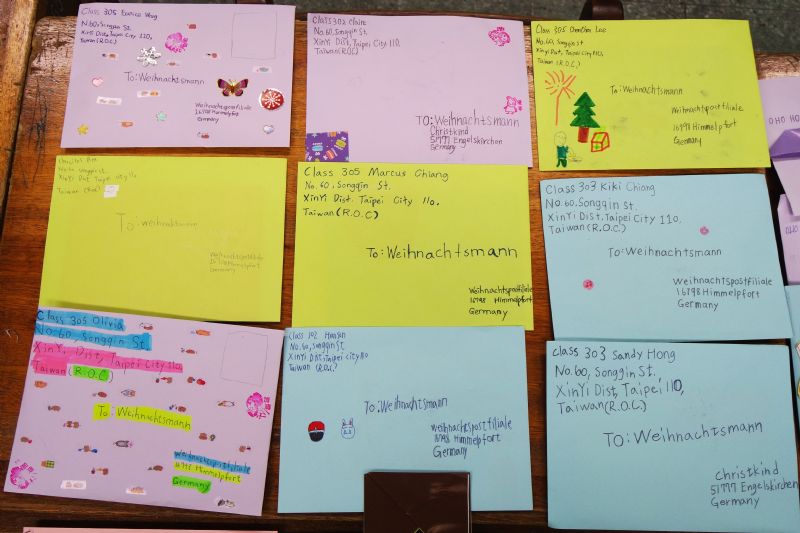 Class 305 Eunice Wang
No.60, Songqin St.
XinYi Dist, Taipei City 110,
Taiwan (R.O.C)
To: Weihnachtsmann
Weihnachtspostfiliale
16798 Himmelpfort
Germany
Class 302 Claire
No.60, Songqin St.
XinYi Dist, Taipei City 110,
Taiwan (R.O.C)
TO: Weihnachtsmann
Christkind
51777 Engelskirchen
Germany
Class 305 Lee
No.60, Songqin st
XinYi Dist, Taipei City 110,
Taiwan (R.O.C)
To: Weihnachtsmann
Weihnachtspostfiliale
16798 Himmelpfort
Germany
OHO HO
Taiwan (R.O.C)
To: Weihnachtsmann
Himmelpfort
Germany
Class 305 Marcus Chiang
No. 60, Songqin St.
XinYi Dist. Taipei City 110.
Taiwan (R.O.C)
To: Weihnachtsmann
Weihnachtspostfiliale
16798 Himmelpfort
Germany
Class 303 Kiki Chiang
No.60, Songqin St.
XinYi Dist, Taipei City 110.
Taiwan (R.O.C)
To: Weihnachtsmann
Weihnachtspostfiliale
16798 Himmelpfort
Germany
Class 305 Olivia
No.60, Songqin St.
XinYi Dist, Taipei City 110.
Taiwan (R.O.C)
To: Weihnachtsmann
Weihnachtspostfiliale
16798 Himmelpfort
Germany
Class 302 Hansen
No. 60, songqin St.
XinYi Dist, Taipei city 110
Taiwan (R.O.C)
To: Weihnachtsmann
Weihnachtspostfiliale
16798 Himmelpfort
Germany
Class 303 Sandy Hong
No.60, Songqin St.
XinYi Dist, Taipei 110,
Taiwan (R.O.C)
TO: Weihnachtsmann
Christkind
51777 Engelskirchen
Germany